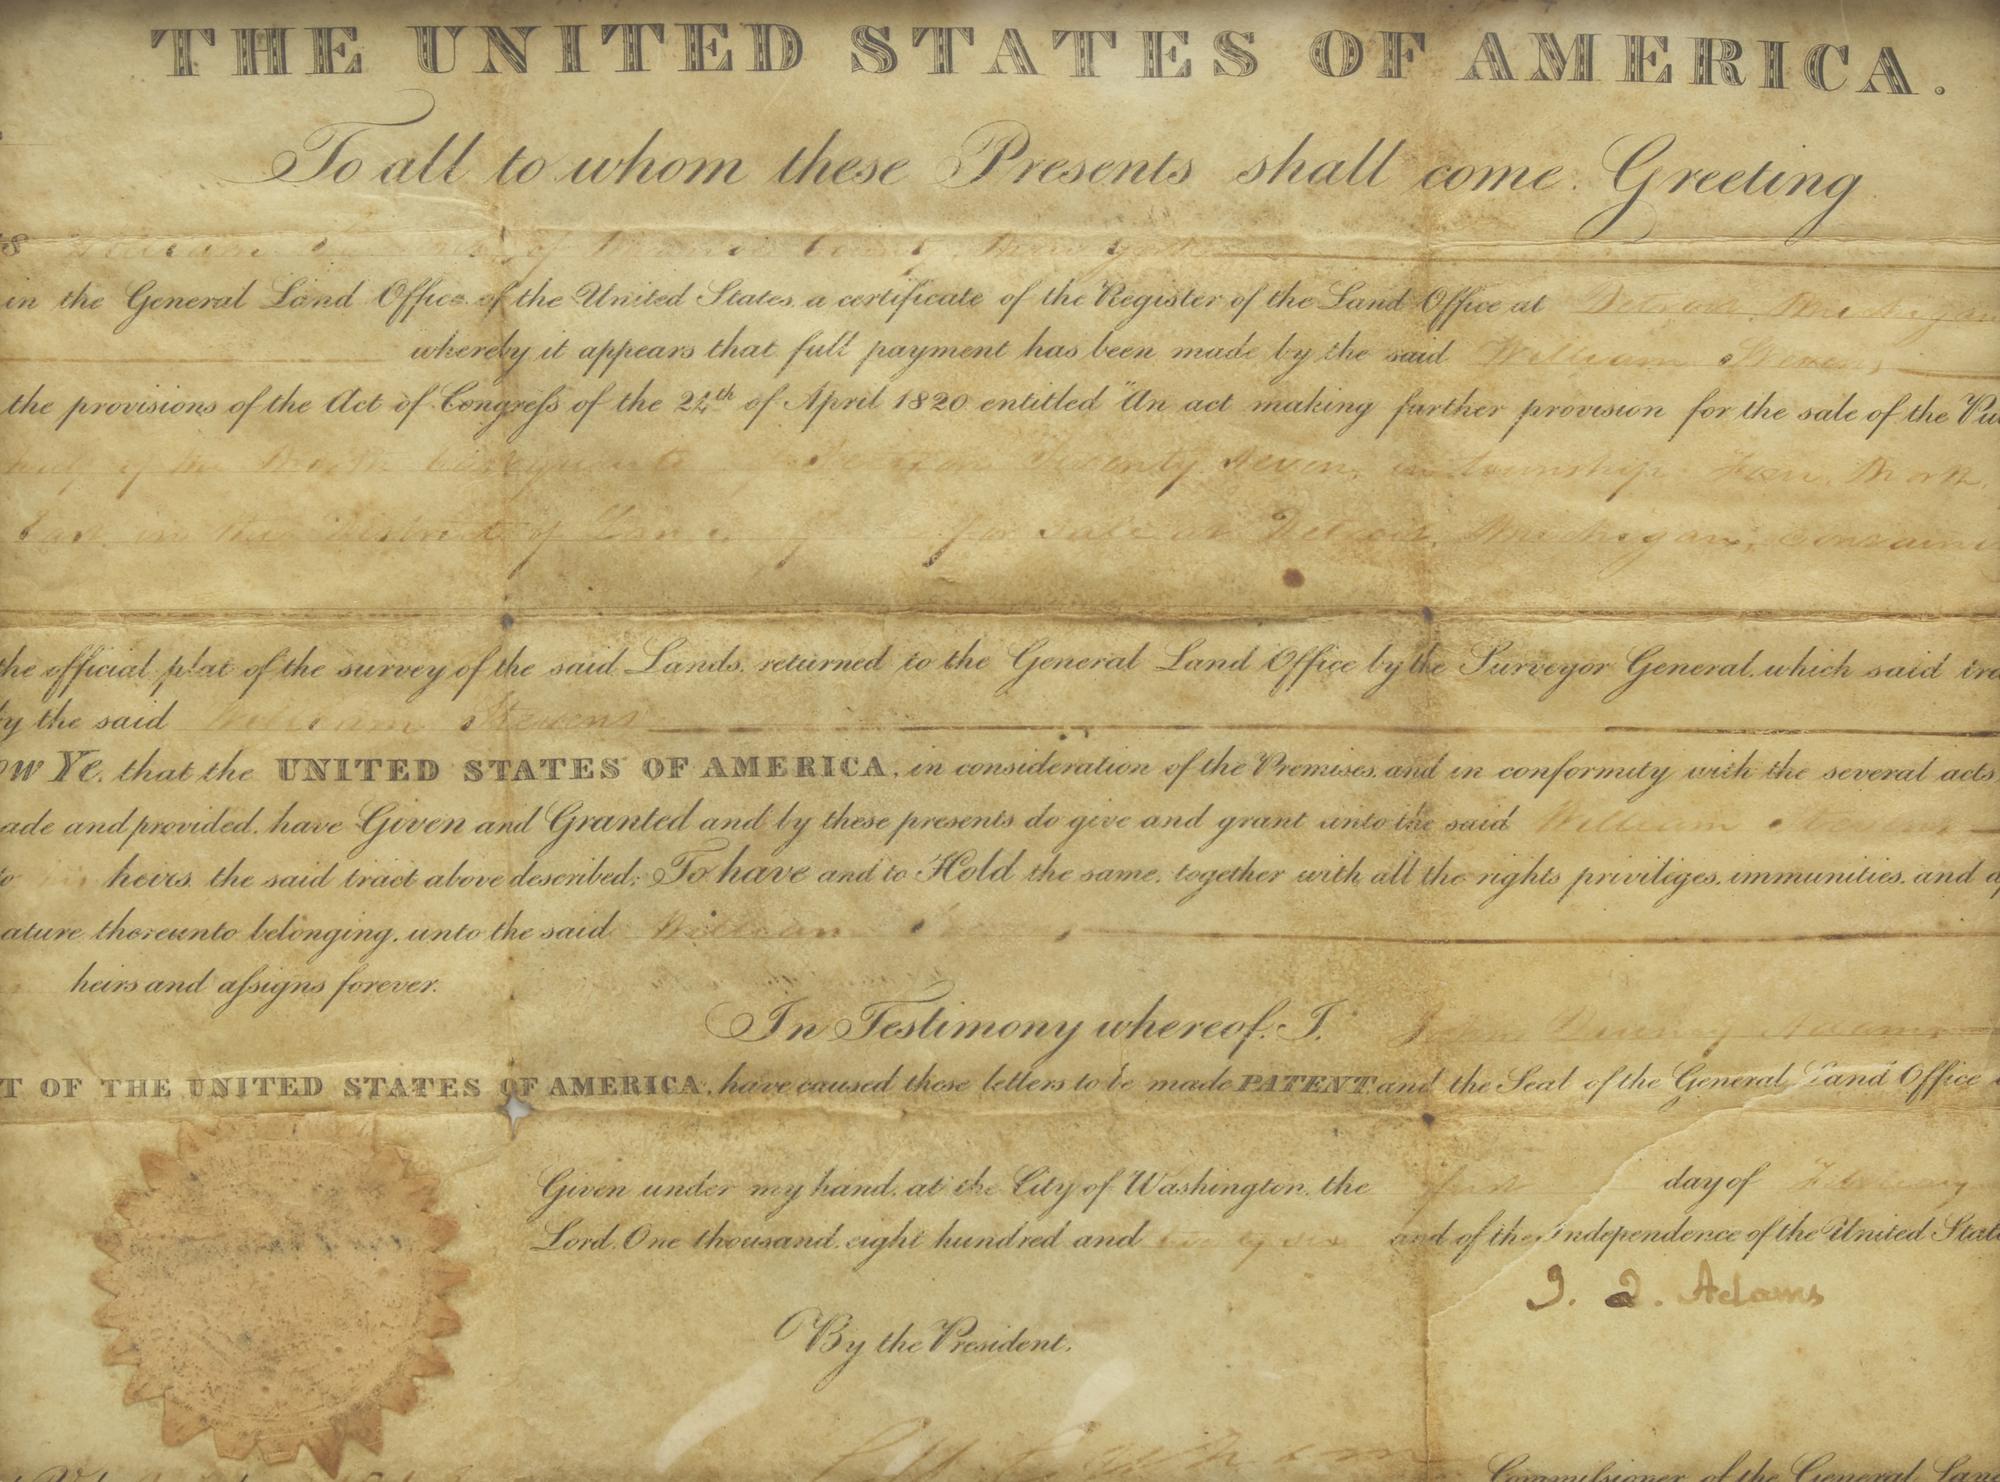 THE UNITED STATES OF AMERICA.
To all to whom these Presents shall come. Greeting
of County, New York
in the General Land Office of the United States, a certificate of the Register of the Land Office at Detroit, Michigan
whereby it appears that full payment has been made by the said William Stevens
the provisions of the Act of Congreſs of the 24th of April 1820 entitled "An act making further provision for the sale of the Pu
half of the North quarter of Section Twenty Seven, in township North,
East, in the District of for sale at Detroit, Michigan, contain
the official plat of the survey of the said Lands, returned to the General Land Office by the Surveyor General, which said tra
by the said William Stevens
ow Ye, that the UNITED STATES OF AMERICA, in consideration of the Premises, and in conformity with the several acts
ade and provided, have Given and Granted and by these presents do give and grant unto the said William Stevens
to his heirs, the said tract above described; To have and to Hold the same, together with all the rights priviliges, immunities, and ap
ature thereunto belonging, unto the said William
heirs and aſsigns forever.
In Testimony whereof, I, John Quincy Adams
T OF THE UNITED STATES OF AMERICA, have caused these letters to be made PATENT and the Seal of the General Land Office
Given under my hand, at the City of Washington, the first day of February
Lord, One thousand eight hundred and twenty six and of the Independence of the United State
J. Q. Adams
By the President,
Commiſsioner of the General Lan